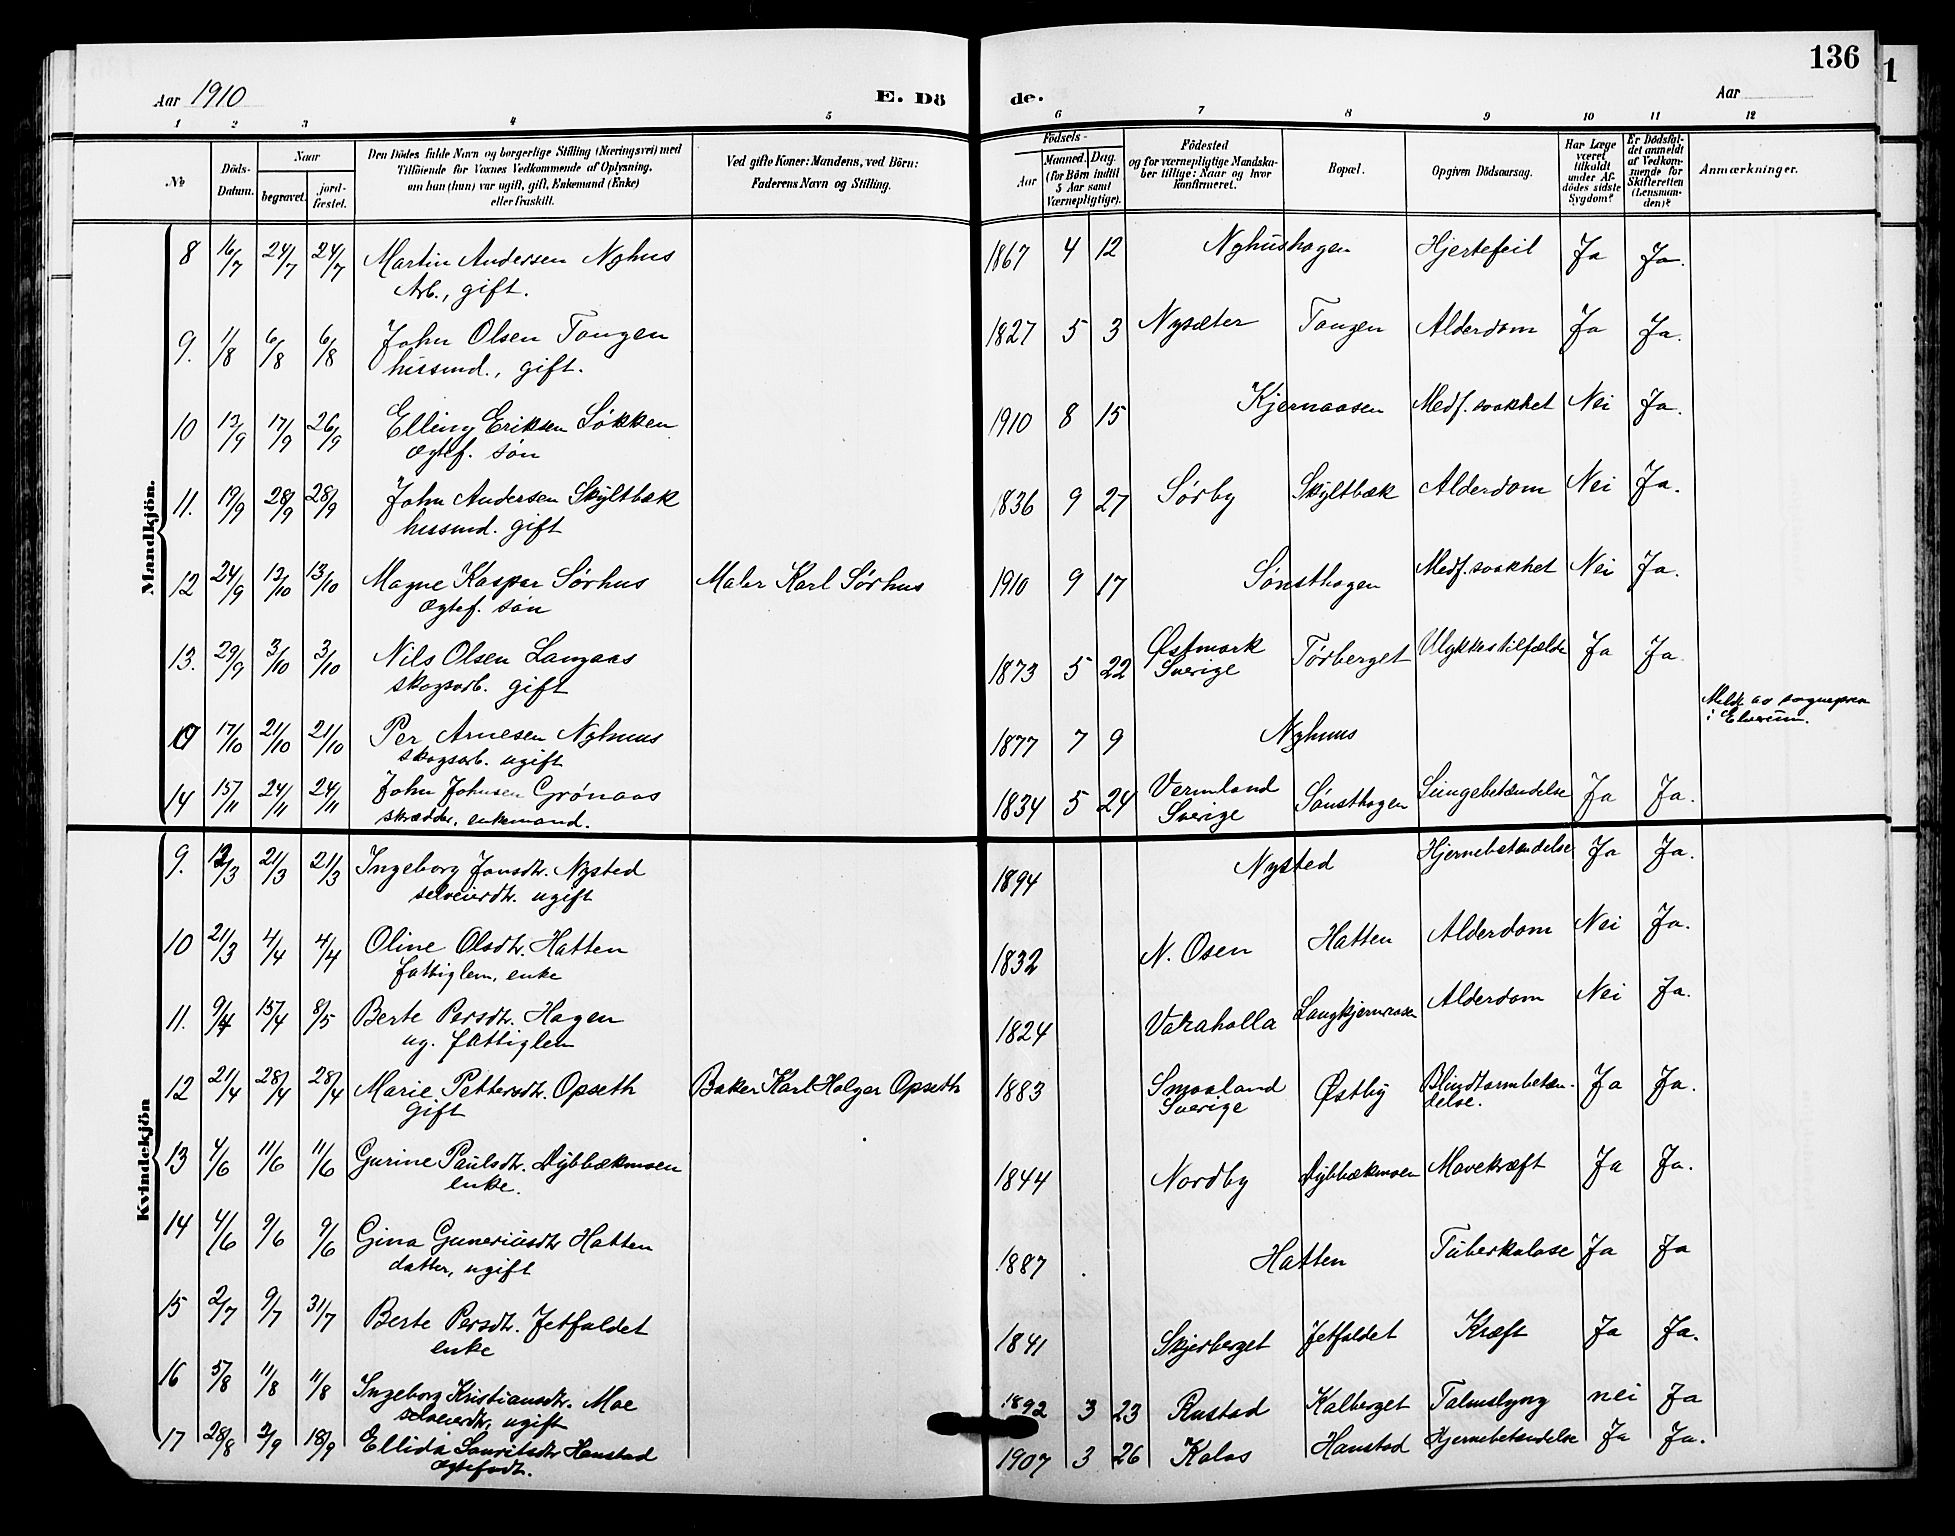 136
1
Aar 1910
E. Dö
de.
Aar
1 2 3 4 5 6 7 8 9 10 11 12
№
Döds-Datum.
Naar
begravet.
jord-fæstet.
Den Dödes fulde Navn og borgerlige Stilling (Næringsvei) med
Tilföiende for Voxnes Vedkommende af Oplysning,
om han (hun) var ugift, gift, Enkemand (Enke)
eller fraskilt.
Ved gifte Koner: Mandens, ved Börn:
Faderens Navn og Stilling.
Födsels-
Aar
Maaned. Dag.
(for Börn indtil
5 Aar samt
Værnepligtige).
Födested
og for værnepligtige Mandska-
ber tillige: Naar og hvor
konfirmeret.
Bopæl.
Opgiven Dödsaarsag.
Har Læge
været
tilkaldt
under Af-
dödes sidste
Sygdom?
Er Dödsfal-
det anmeldt
af Vedkom-
mende for
Skifteretten
(Lensman-
den)?
Anmærkninger.
Mandkjön.
8 16/7 24/7 24/7 Martin Andersen Nyhus 1867 4 12 Nyhushagen Hjertefeil Ja Ja.
Arb., gift.
9. 1/8 6/8 6/8 John Olsen Tangen 1827 5 3 Nysæter Tangen Alderdom Ja Ja.
husmd., gift.
10 13/9 17/9 26/9 Elling Eriksen Søkken 1910 8 15 Kjernaasen Medf. svakhet Nei Ja.
Ægtef. søn
11. 19/9 28/9 28/9 John Andersen Skyltbæk 1836 9 27 Sørby Skyltbæk Alderdom Nei Ja.
husmd. gift
12 24/9 13/10 13/10 Magne Kaspar Sørhus Maler Karl Sørhus 1910 9 17 Sønsthagen Medf. svakhet Nei Ja.
Ægtef. søn
13. 29/9 3/10 3/10 Nils Olsen Langaas 1873 5 22 Østmark Sverige Tørberget Ulykkestilfælde Ja Ja.
skogsarb. gift
17/10 21/10 21/10 Per Arnesen Nyhuus 1877 7 9 Nyhuus Meldt av sognepresten i Elverum.
skogsarb. ugift
14 15/11 24/11 24/11 John Johnsen Grønaas 1834 5 24 Vermland Sverige Sønsthagen Lungebetændelse Ja Ja.
skrædder, enkemand.
Kvindekjön
9. 12/3 21/3 21/3 Ingeborg Jonsdtr. Nysted 1894 Nysted Hjernebetændelse Ja Ja.
selveierdtr. ugift
10 21/3 4/4 4/4 Oline Olsdtr. Hatten 1832 N. Osen Hatten Alderdom Nei Ja.
fattiglem, enke
11. 9/4 15/4 8/5 Berte Persdtr. Hagen 1824 Varaholla Langkjernaasen Alderdom Nei Ja.
ug. fattiglem
12 21/4 28/4 28/4 Marie Pettersdtr. Opseth Baker Karl Holger Opseth 1883 Smaaland Sverige Østby Blindtarmbetændelse. Ja Ja.
gift
13 4/6 11/6 11/6 Gurine Paulsdtr. Dybbækmoen 1844 Nordby Dybbækmoen Mavekræft Ja Ja.
enke.
14 4/6 9/6 9/6 Gina Guneriusdtr Hatten 1887 Hatten Tuberkulose Ja Ja
datter, ugift
15 2/7 9/7 31/7 Berte Persdtr. Jetfaldet 1841 Skjerberget Jetfaldet Kræft Ja Ja.
enke
16 5/8 11/8 11/8 Ingeborg Kristiansdtr. Moe 1892 3 23 Rustad Kalberget nei Ja
selveierdtr. ugift
17 28/8 2/9 18/9 Ellida Lauritsdtr Hanstad 1907 3 26 Kalas Hanstad Hjernebetændelse Ja Ja.
Ægtefødt.